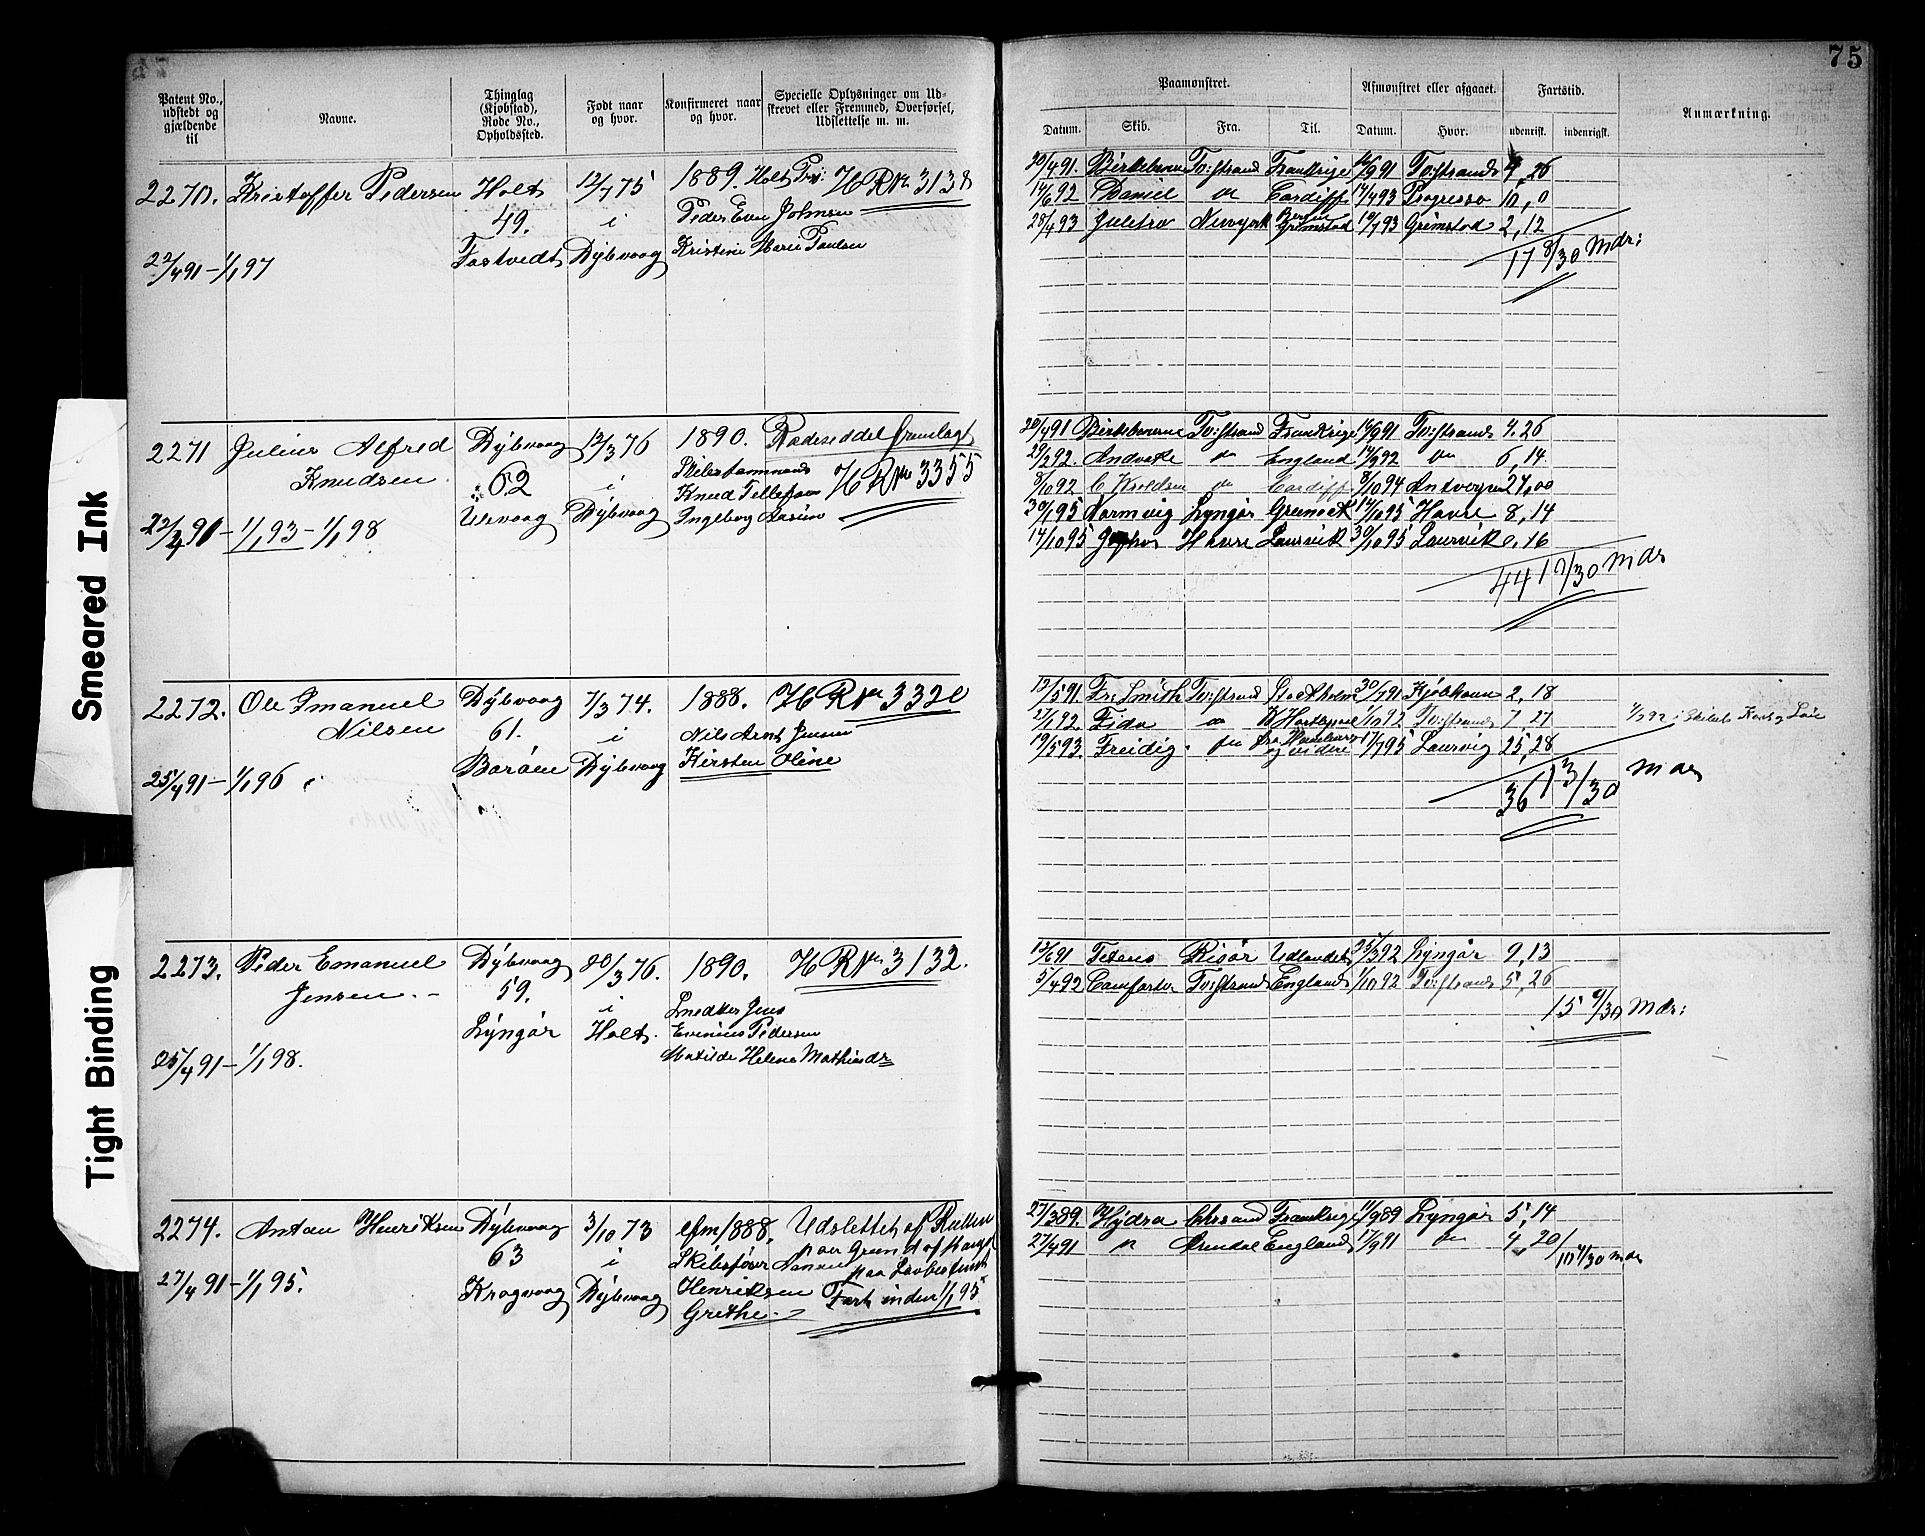 75
Patent No., udstedt og gjældende til
Navne.
Thinglag (Kjøbstad), Rode No., Opholdssted.
Født naar og hvor.
Konfirmeret naar og hvor.
Specielle Oplysninger om Udskrevet eller Fremmed, Overførsel, Udslettelse m. m.
Paamønstret.
Afmønstret eller afgaaet.
Fartstid.
Anmærkning.
Datum.
Skib.
Fra.
Til.
Datum.
Hvor.
udenrigs.
indenrigs.
2270. Kristoffer Pedersen Holt 12/7 75 1889. Holt Pr: H R No 3138
49. i Peder Even Johnsen
22/4 91 – 1/1 97 Fostvedt Dybvaag Kristine Marie Paulsen
20/4 91. Birkebeneren Tv:strand Frankrige 16/9 91 Tv:strand 4, 26
14/6 92 Daniel do Cardiff 14/4 93 Progresso 10, 0
28/4 93 Juletræ Newyork Grimstad 10/7 93 Grimstad 2, 12
17 8/30 Mdr:
2271 Julius Alfred Dybvaag 12/3 76 1890. Rodeseddel fremlagt
Knudsen 62 i H R No 3355
Knud Tellefsen
22/4 91 – 1/1 93 – 1/1 98 Dybvaag Ingeborg
20/4 91 Birkebeneren Tv:strand Frankrige 16/9 91 Tv:strand 4. 26
29/2 92. Andvake do England 14/9 92 do 6, 14.
8/10 92 do Cardiff 8/10 94 Antverpen 24,00
30/1 95 Narmvig Lyngør Grenock 14/10 95 Havre 8, 14
14/10 95 Havre Laurvik 30/10 95 Laurvik 0. 16
44 10/30 Mdr
2272. Ole Emanuel Dybvaag 7/3 74. 1888. H R No 3320
Nilsen 61. i Nils Arnt Jensen
25/4 91 – 1/1 96 Borøen Dybvaag Kirsten Oline
12/5 91. Fr: Smith Tv:strand Stockholm 30/7 91 Kjøbhavn 2, 18
Fido do 1/10 92 Tv:strand 7, 27
19/5 93. Freidig. do fra Hamburg og videre 17/7 95 Laurvig 25, 28
36 13/30 Mdr
2273. Peder Emanuel Dybvaag 20/3 76. 1890. H R No 3132.
Jensen. – 59. i Jens
Lyngør Holt. Evenius Pedersen
25/4 91 – 1/1 98. Matilde Helene Mathiasdr
12/6 91 Tetens Risør Udlandet 25/3 92 Lyngør 9, 13
5/4 92 Comfort Tv:strand England 1/10 92 Tv:strand 5, 26
15 9/30 Mdr:
2274. Anton Henriksen Dybvaag 3/10 73 1888. Udslettet af Rullen
63 i Skibsfører paa Grund af
27/4 91 – 1/1 95. Kragvaag Dybvaag Henriksen Fart inden 1/1 95
Grethe.
27/3 89. Hydra Chrsand Frankrige 11/9 89 Lyngør 5, 14
27/4 91 do Arendal England 11/9 91 do 4, 20
10 4/30 Mdr
Smeared Ink
Tight Binding